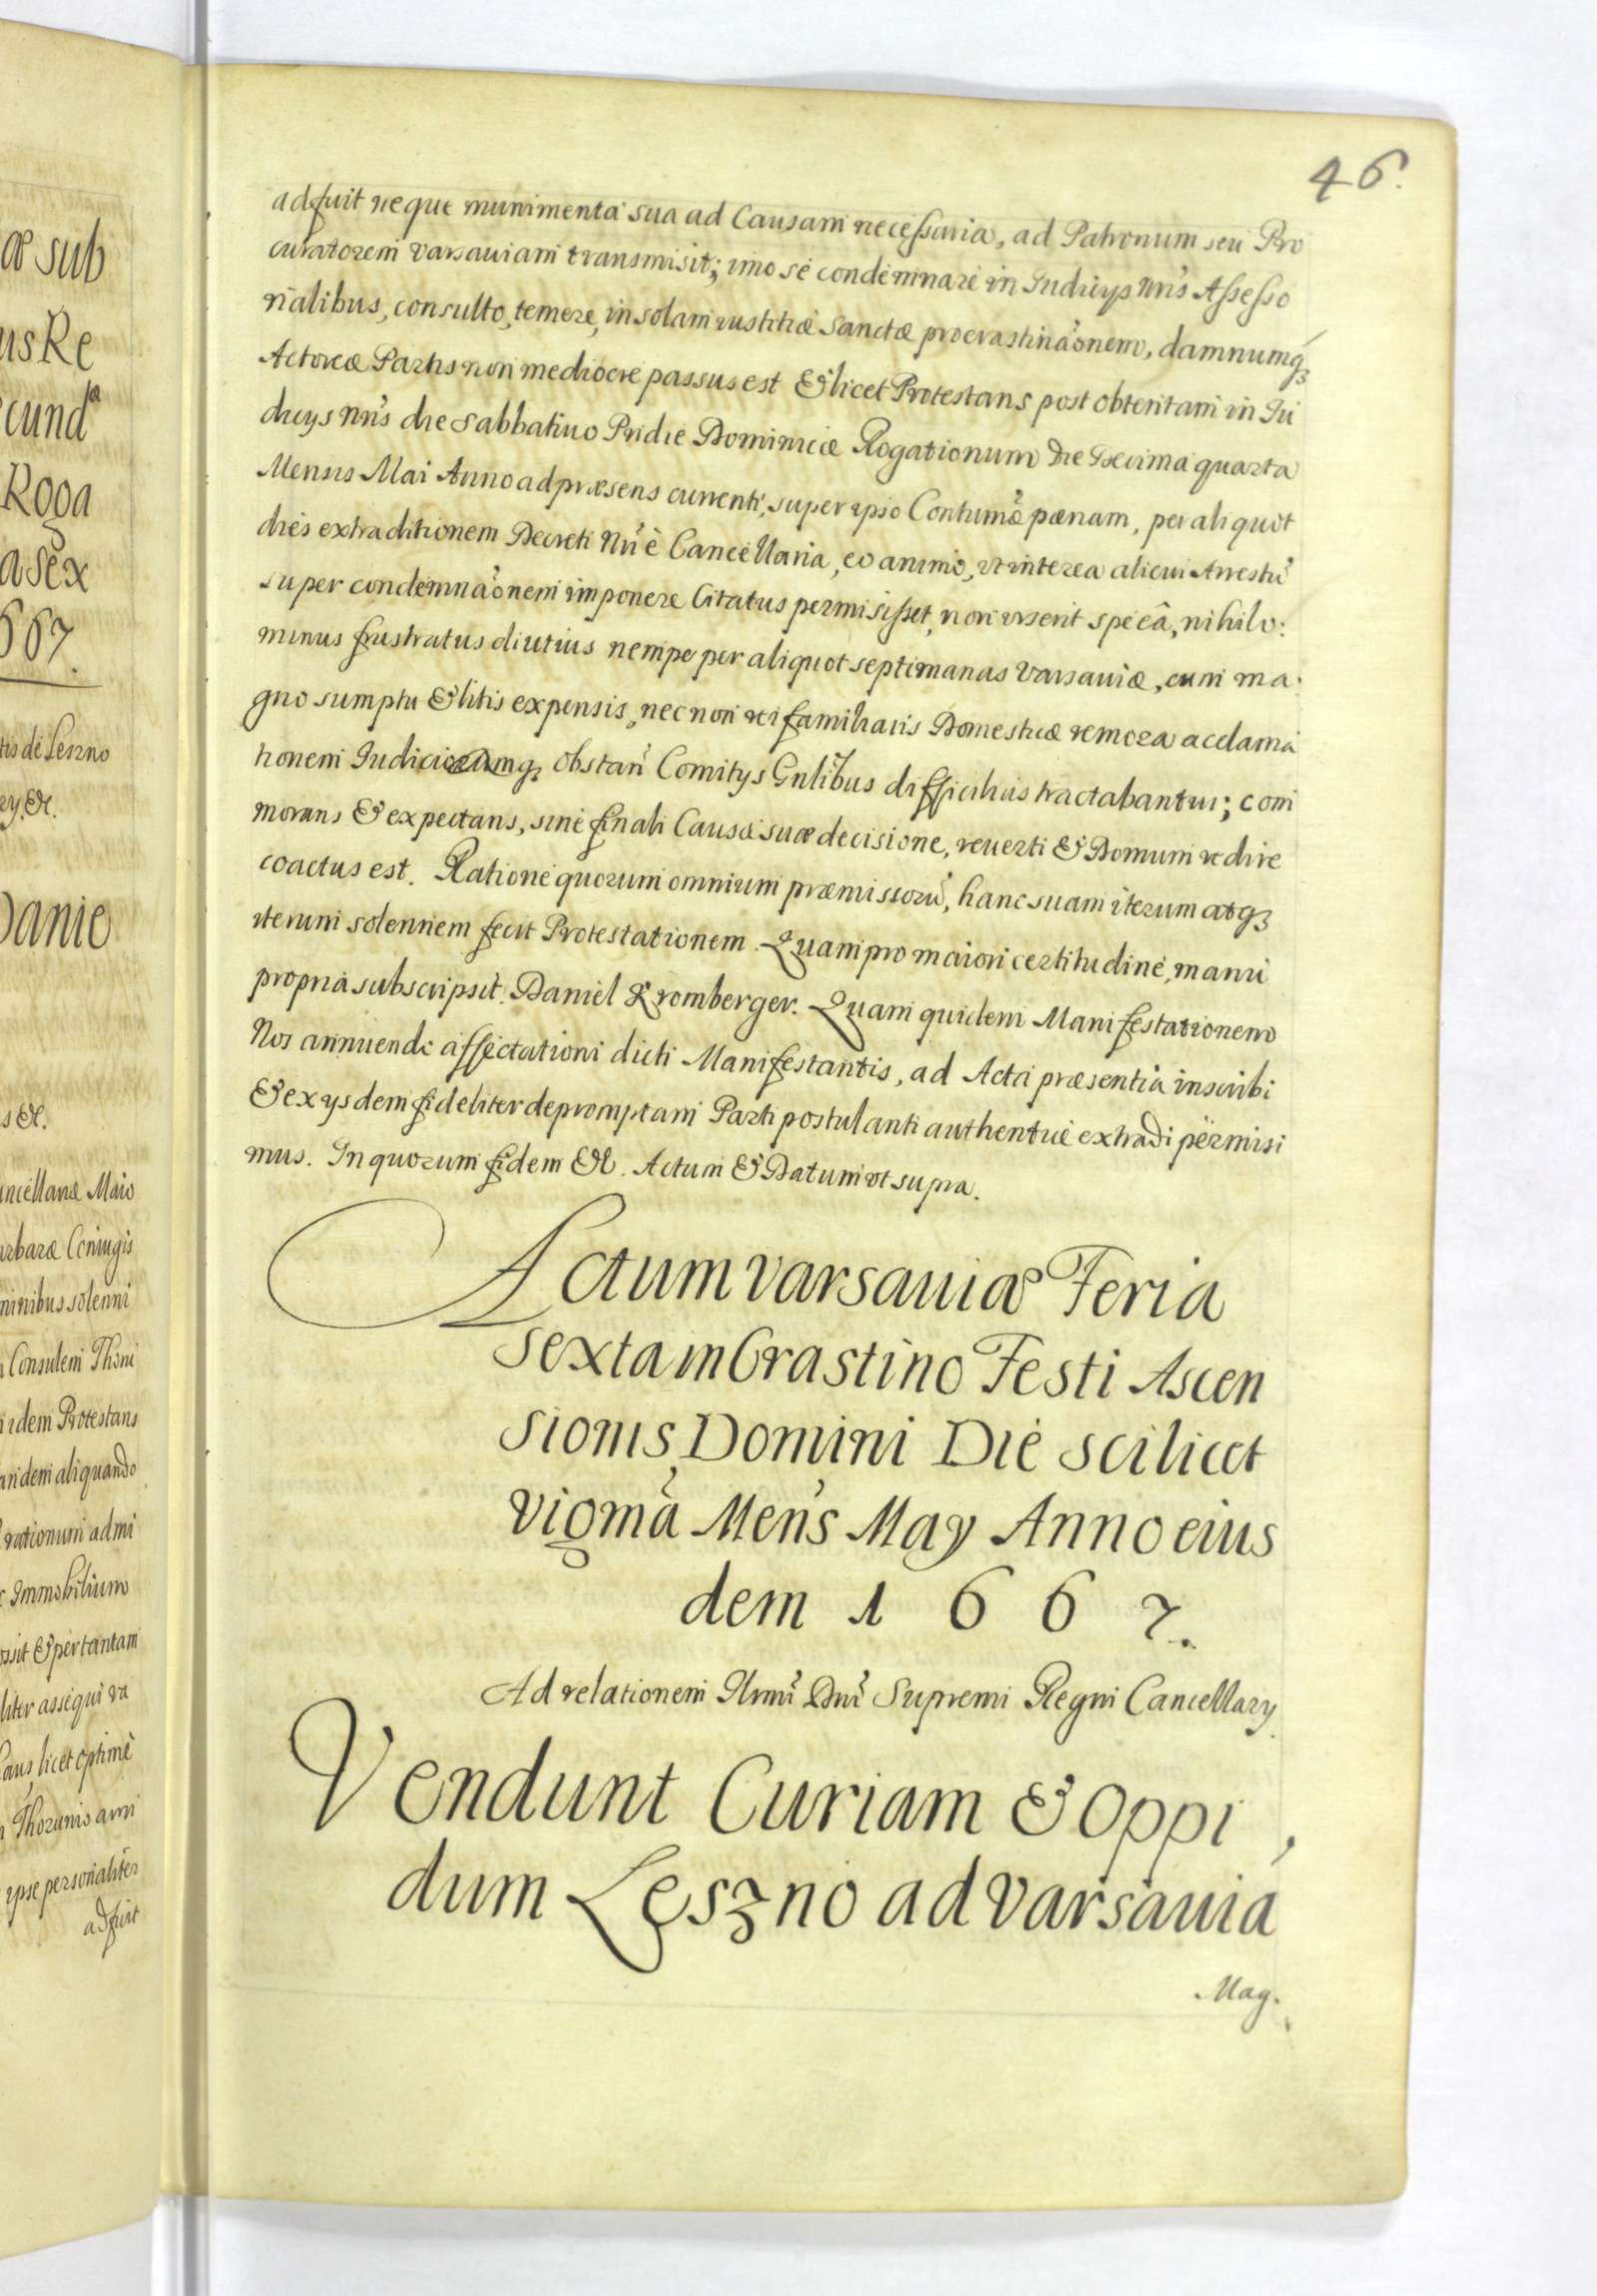 46.
adfuit neque munimenta sua ad Causam necessaria, ad Patronum seu Pro
curatorem Varsauiam transmisit; imo se condemnare in Iudicys Nris Assesso
rialibus, consulto, temere, in solam iustitiæ Sanctæ procrastinaõnem, damnumq3
Actoreæ Partis non mediocre passus est & licet Protestans post obtentam in Iu
dicys Nris die Sabbatiuo Pridie Dominicæ Rogationum Die Decima quarta
Mensis Mai Anno ad præsens currenti, super ipso Contumã pœnam, per aliquot
dies extraditionem Decreti Nri è Cancellaria, eo animo, vt interea alicui Arrestũ
super condemnaõnem imponere Citatus permisisset, non vrserit spe eâ, nihilo:
minus frustratus diutius nempe per aliquot septimanas Varsauiæ, cum ma:
gno sumptu & litis expensis, nec non rei familiaris Domesticæ remora acclama
tionem Iudiciorumq3 obstan Comitys Gnlibus difficilius tractabantur; com
morans & expectans, sine finali Causæ suæ decisione, reuerti & Domum redire
coactus est. Ratione quorum omnium præmissorũ, hanc suam iterum atq3
iterum solennem fecit Protestationem. Quam pro maiori certitudine, manu
propria subscripsit. Daniel Kromberger. Quam quidem Manifestationem
Nos annuendo affectationi dicti Manifestantis, ad Acta præsentia inscribi
& ex ysdem fideliter depromptam Parti postulanti authentice extradi permisi
mus. In quorum fidem &c. Actum & Datum vt supra.
Actum Varsauiæ Feria
sexta in Crastino Festi Ascen
sionis Domini Die scilicet
vigmã Mens May Anno eius
dem 1 6 6 7.
Ad relationem Illrmi Dni Supremi Regni Cancellary
Vendunt Curiam & Oppi,
dum Leszno ad Varsauiã
Mag.